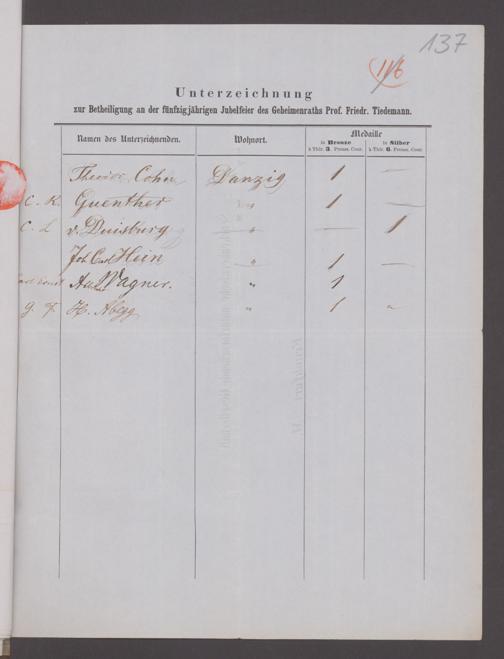 137
116
Unterzeichnung
zur Betheiligung an der fünfzigjährigen Jubelfeier des Geheimenraths Prof. Friedr. Tiedemann.
Namen des Unterzeichnenden. Wohnort. Medaille
in Bronze in Silber
à Thlr. 3. Preuss. Cour. à Thlr. 6. Preuss. Cour.
Theodor Cohn Danzig 1 —
C. K. Guenther " 1 —
C. L. v. Duisburg " — 1
Joh Carl Hein " 1 —
Wagner. " 1
G. F. H. Abegg " 1 "